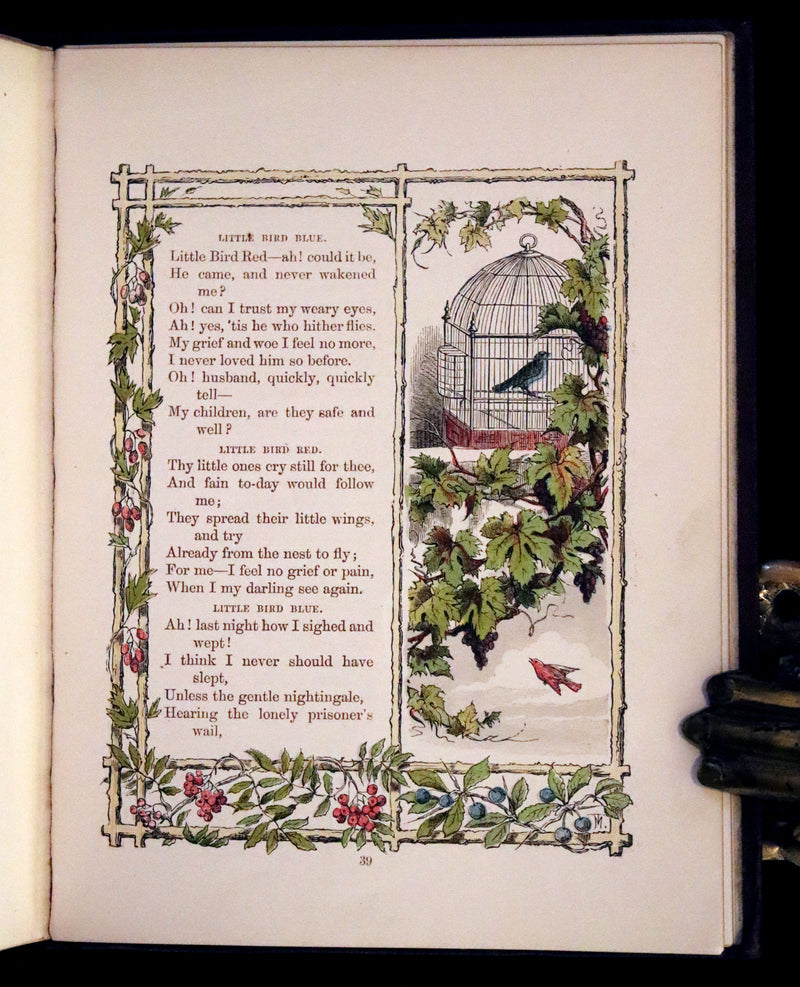 LITTLE BIRD BLUE.
Little Bird Red—ah! could it be,
He came, and never wakened
me?
Oh! can I trust my weary eyes,
Ah! yes, 'tis he who hither flies.
My grief and woe I feel no more,
I never loved him so before.
Oh! husband, quickly, quickly
tell—
My children, are they safe and
well?
LITTLE BIRD RED.
Thy little ones cry still for thee,
And fain to-day would follow
me;
They spread their little wings,
and try
Already from the nest to fly;
For me—I feel no grief or pain,
When I my darling see again.
LITTLE BIRD BLUE.
Ah! last night how I sighed and
wept!
I think I never should have
slept,
Unless the gentle nightingale,
Hearing the lonely prisoner's
wail,
M.
39